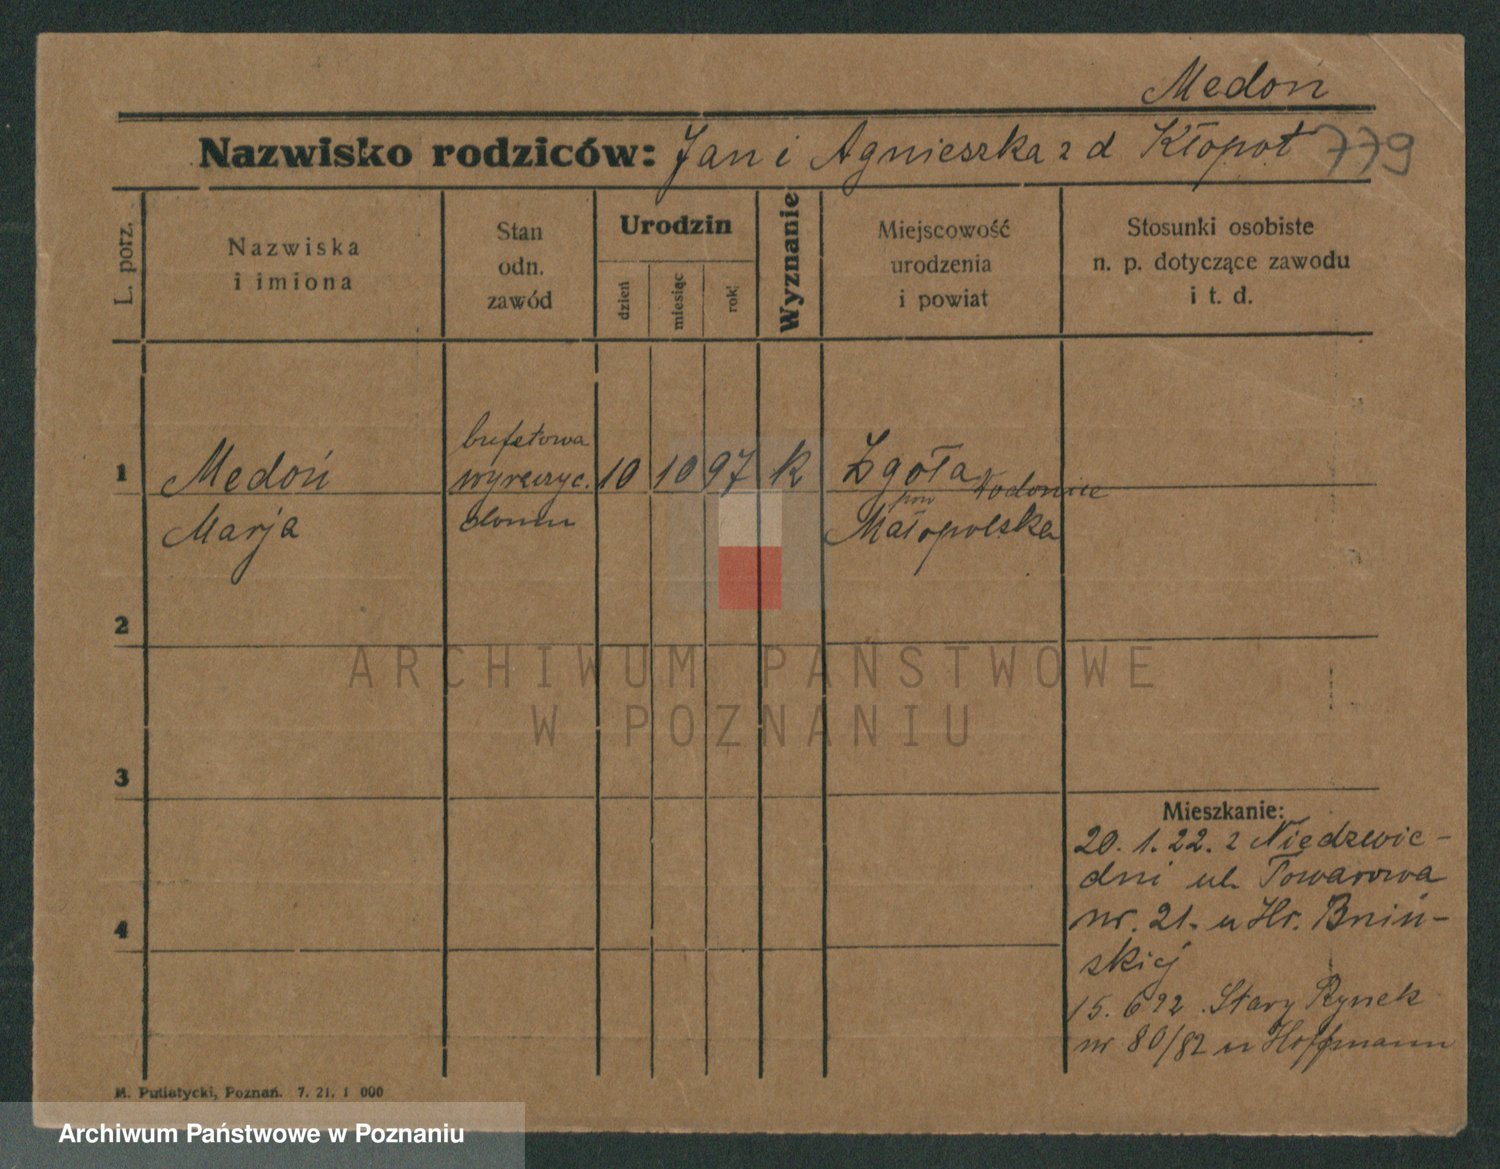 Medoń
Nazwisko rodziców: Jan i Agnieszka z d Kłopot 779
L. porz.
Nazwiska
i imiona
Stan
odn.
zawód
Urodzin
dzień
miesiąc
rok
Wyznanie
Miejscowość
urodzenia
i powiat
Stosunki osobiste
n. p. dotyczące zawodu
i t. d.
1
Medoń
Marja
bufetowa
wyręczyc.
domu
10 10 97 k
Żgoła
pow
Małopolska
2
3
4
Mieszkanie:
20. 1. 22. z Niedzewic-
dni ul. Towarowa
nr. 21. u Hr. Bniń-
skiej
15. 6 22. Stary Rynek
nr 80/82 u Hoffmann
M. Putiatycki, Poznań. 7. 21. 1 000
ARCHIWUM PAŃSTWOWE
W POZNANIU
Archiwum Państwowe w Poznaniu